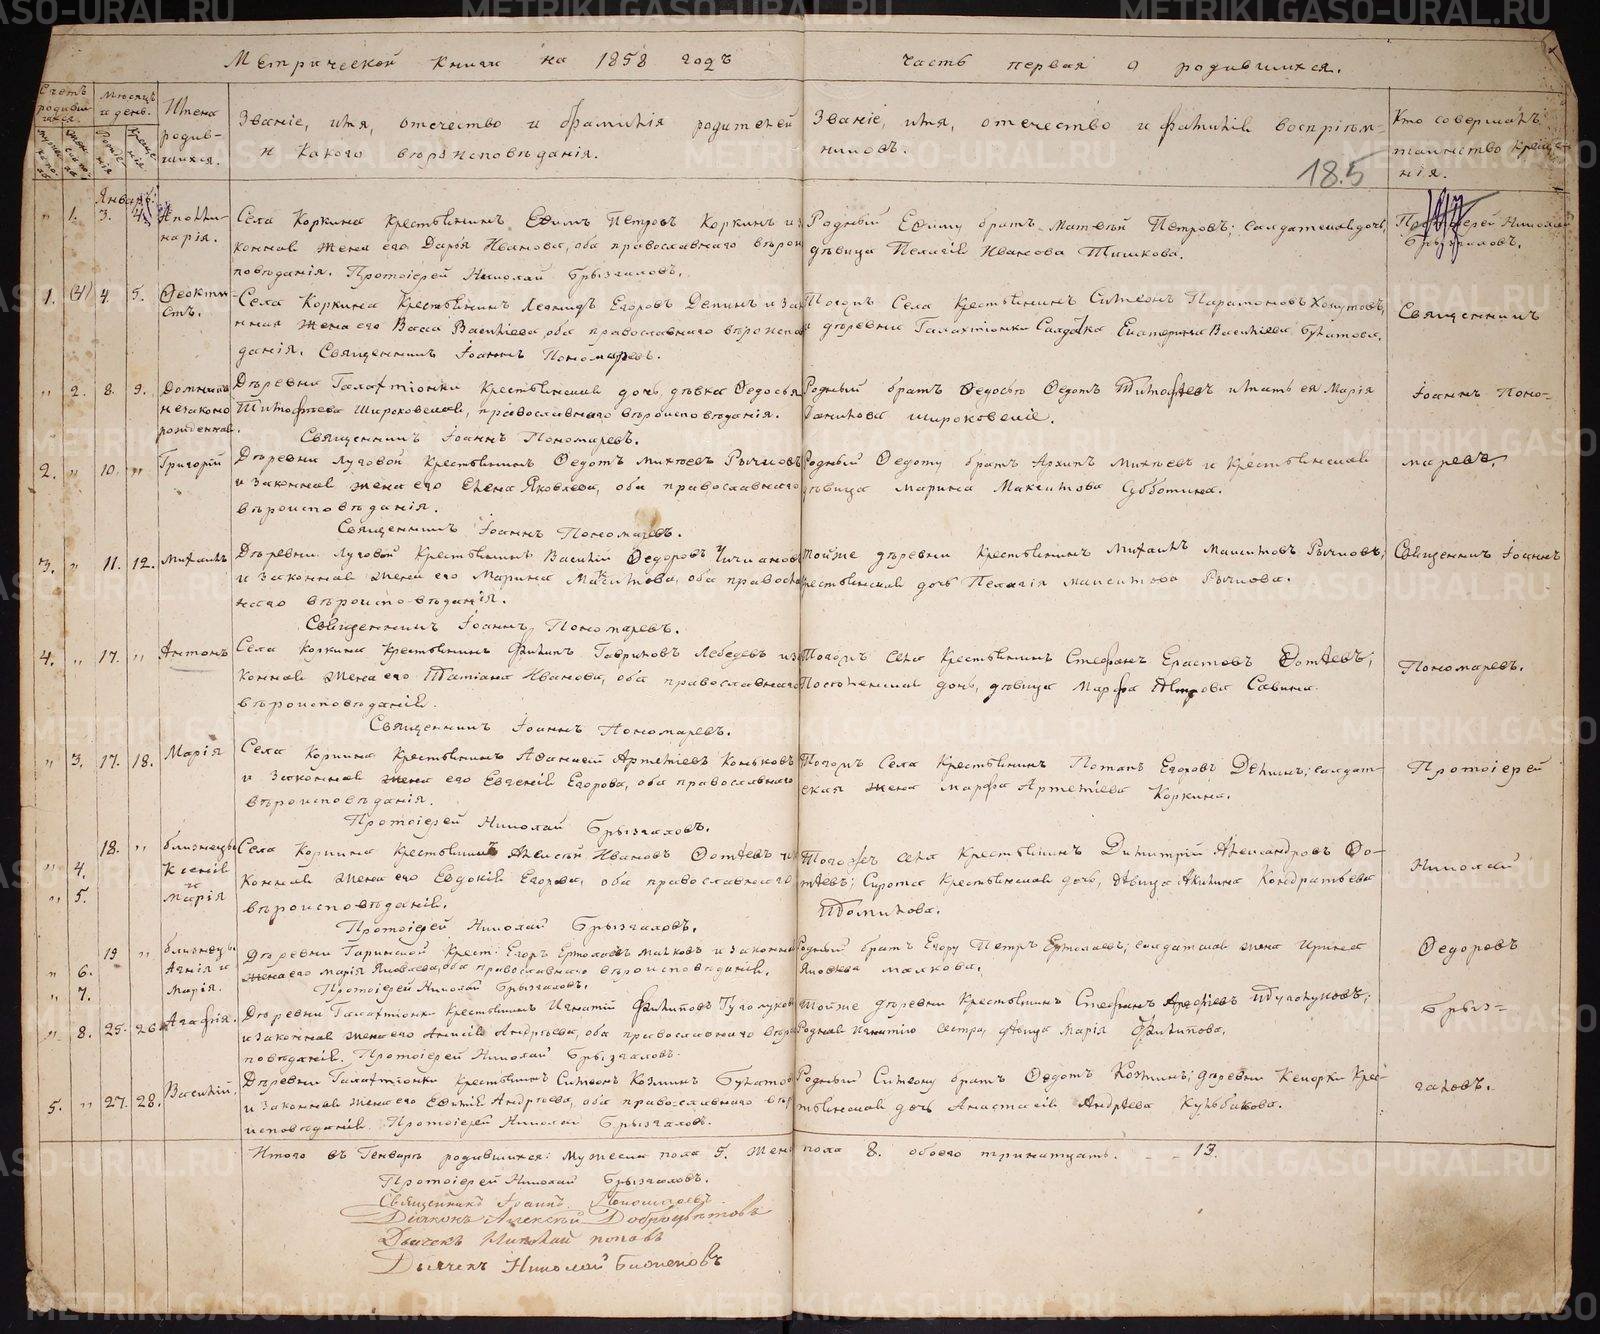 Метрической книги на 1858 годъ часть первая о родившихся.
Счетъ родив-шихся.
Мѣсяцъ и день.
Имена родив-шихся.
Званіе, имя, отечество и фамилія родителей
и какого вѣроисповѣданія.
Званіе, имя, отечество и фамилія воспріем-
никовъ.
Кто совершалъ
таинство креще-
нія.
185
Январь.
" 1. 3. 4. Аполли-
нарія.
Села Коркина крестьянинъ Ефимъ Петровъ Коркинъ и за
конная жена его Дарья Иванова, оба православнаго вѣроис
повѣданія. Протоіерей Николай Брызгаловъ.
Родный Ефиму братъ Матвѣй Петровъ; салдатская дочь,
дѣвица Пелагія Иванова Тишкова.
Протоіерей Николай
Брызгаловъ.
1. 4. 5. Феокти-
стъ.
Села Коркина Крестьянинъ Леонидъ Егоровъ Депинъ и за
нная жена его Васса Васильева, оба православнаго вѣроиспо
данія. Священникъ Іоаннъ Пономаревъ.
Тогожъ Села Крестьянинъ Симеонъ Парамоновъ Хомутовъ,
и деревни Галактіонки Салдатка Екатерина Васильева Булатова.
Священникъ
" 2. 8. 9. Домникія
незаконо
рожденная.
Дѣревни Галактіонки крестьянская дочь, дѣвка Федосья
Тимофѣева Широковская, православнаго вѣроисповѣданія.
Священникъ Іоаннъ Пономаревъ.
Родный братъ Федосьѣ Федотъ Тимофѣевъ и мать ея Марія
Данилова Широковскіе.
Іоаннъ Поно-
2. " 10. " Григорій
Дѣревни Луговой крестьянинъ Федотъ Михѣевъ Рычковъ
и законная жена его Елена Яковлева, оба православнаго
вѣроисповѣданія.
Священникъ Іоаннъ Пономаревъ.
Родный Федоту братъ Архипъ Михѣевъ и крестьянская
дѣвица Марина Максимова Субботина.
маревъ.
3. " 11. 12. Михаилъ
Дѣревни Луговой Крестьянинъ Василій Федоровъ
и законная жена его Марина Максимова, оба правосла
наго вѣроисповѣданія.
Священникъ Іоаннъ Пономаревъ.
Тойже дѣревни крестьянинъ Михаилъ Максимовъ Рычковъ;
крестьянская дочь Пелагія Максимова Рычкова.
Священникъ Іоаннъ
4. " 17. " Антонъ
Села Коркина Крестьянинъ Филипъ Гавриловъ Лебедевъ и за
конная жена его Татіана Иванова, оба православнаго
вѣроисповѣданія.
Священникъ Іоаннъ Пономаревъ.
Тогожъ села Крестьянинъ Стефанъ Ерастовъ Фотѣевъ;
дочь, дѣвица Марфа Савина.
Пономаревъ.
" 3. 17. 18. Марія
Села Коркина Крестьянинъ Афанасій Артеміевъ Коньковъ
и законная жена его Евгенія Егорова, оба православнаго
вѣроисповѣданія.
Протоіерей Николай Брызгаловъ.
Тогожъ Села Крестьянинъ Потапъ Егоровъ Депинъ; салдат-
ская жена Марфа Артеміева Коркина.
Протоіерей
18. " близнецы
" 4. Ксенія
и
" 5. Марія
Села Коркина Крестьянинъ Алексѣй Ивановъ Фотѣевъ и за
конная жена его Евдокія Егорова, оба православнаго
вѣроисповѣданія.
Протоіерей Николай Брызгаловъ.
Тогожъ села Крестьянинъ Димитрій Александровъ Фо-
тѣевъ; Сирота Крестьянская дочь, дѣвица Акилина Кондратьева
Томилова.
Николай
19 " близнецы
" 6. Агнія и
" 7. Марія.
Дѣревни Гаринской Крест: Егоръ Ермолаевъ Малковъ и законная
жена его Марія Яковлева, оба православнаго вѣроисповѣданія.
Протоіерей Николай Брызгаловъ.
Родный братъ Егору Петръ Ермолаевъ; солдатская жена Ирина
Яковлева Малкова.
Федоровъ
" 8. 25. 26. Агафія.
Дѣревни Галактіонки Крестьянинъ Игнатій Филиповъ
и законная жена его Анисія Андреева, оба православнаго вѣрои
повѣданія. Протоіерей Николай Брызгаловъ.
Тойже дѣревни Крестьянинъ Стефанъ
Родная Игнатію сестра, дѣвица Марія Филипова.
Брыз-
5. " 27. 28. Василій.
Дѣревни Галактіонки крестьянинъ Симеонъ Козминъ Булатов
и законная жена его Евфимія Андреева, оба православнаго вѣр
исповѣданія. Протоіерей Николай Брызгаловъ.
Родный Симеону братъ Федотъ Козминъ; дѣревни Кекорки Крес-
тьянская дочь Анастасія Андреева Кульбакова.
галовъ.
Итого въ Генварѣ родившихся: мужеска пола 5. жен: пола 8. обоего тринатцать. - - 13.
Протоіерей Николай Брызгаловъ.
Священникъ Іоаннъ Пономаревъ
Діаконъ Алексѣй Доброцвѣтовъ
Дьячекъ Николай Поповъ
Дьячекъ Николай
METRIKI.GASO-URAL.RU